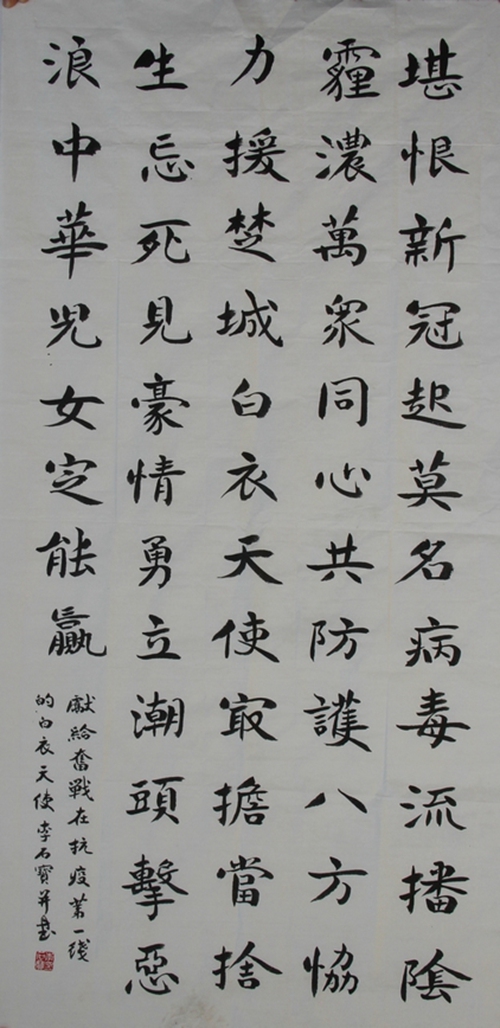 堪恨新冠起莫名病毒流播陰
霾濃萬衆同心共防護八方協
力援楚城白衣天使敢擔當捨
生忘死見豪情勇立潮頭擊惡
浪中華兒女定能贏
獻給奮戰在抗疫第一綫
的白衣天使李石寶并書